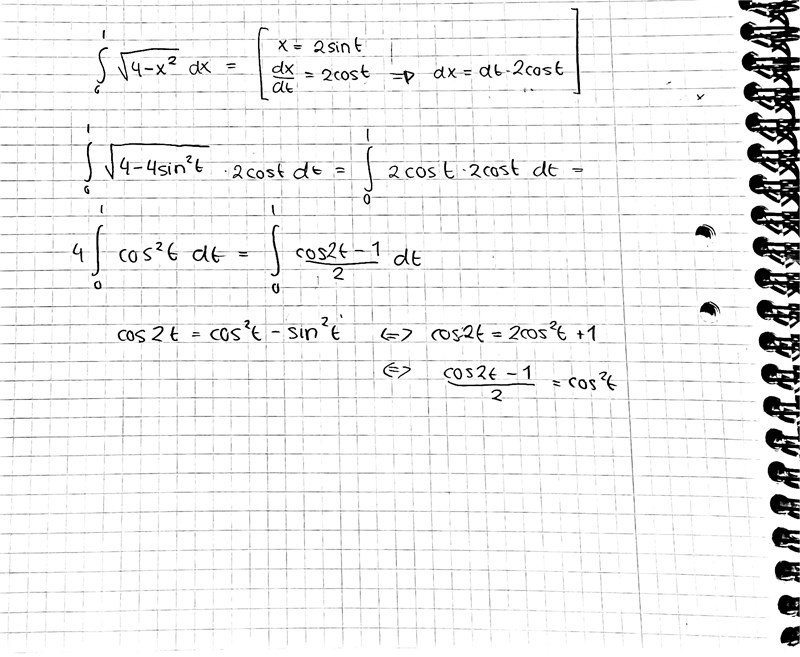 ∫₀¹ √(4-x²) dx = [ x = 2sint
dx/dt = 2cost ⇒ dx = dt·2cost ]
∫₀¹ √(4-4sin²t) · 2cost dt = ∫₀¹ 2cost · 2cost dt =
4 ∫₀¹ cos²t dt = ∫₀¹ (cos2t - 1)/2 dt
cos2t = cos²t - sin²t ⇔ cos2t = 2cos²t + 1
⇔ (cos2t - 1)/2 = cos²t